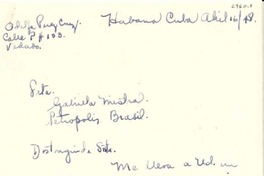 Habana Cuba Abril 16/48.
Calle # 103.
Vedado.
Srta.
Gabriela Mistral.
Petropolis Brasil.
Distinguida Srta.
Me lleva a Ud. un